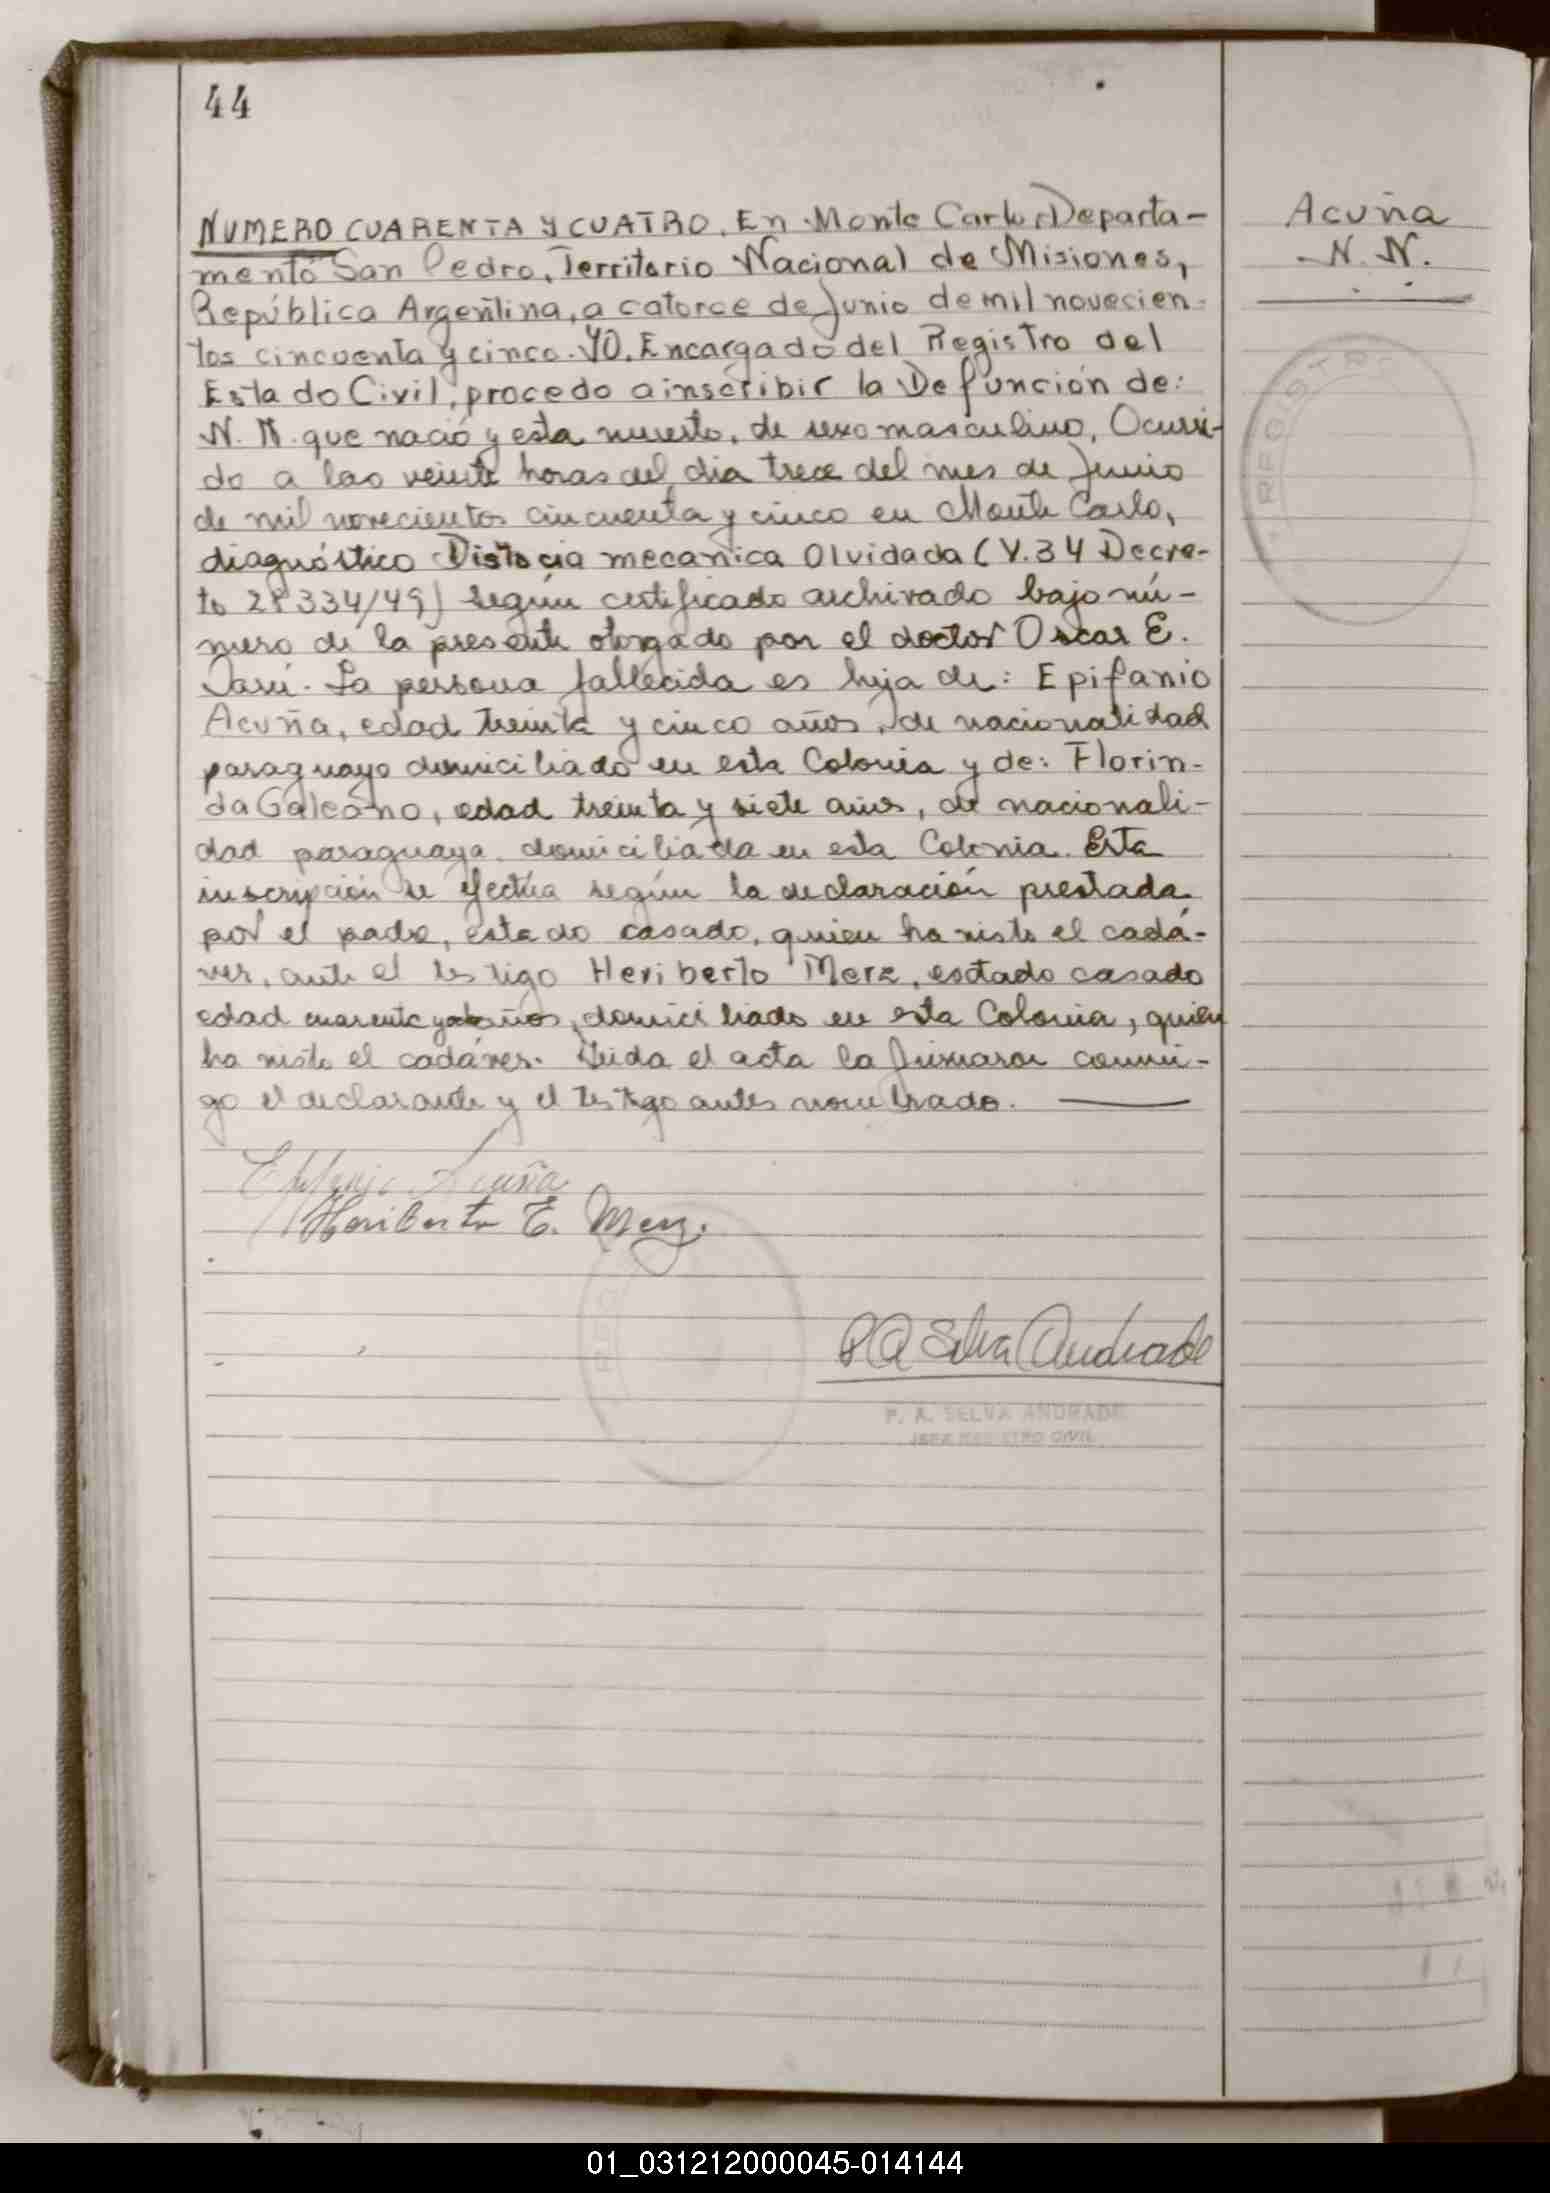 44
NUMERO CUARENTA Y CUATRO. En Monte Carlo, Departa-
mento San Pedro, Territorio Nacional de Misiones,
República Argentina, a catorce de Junio de mil novecien-
tos cincuenta y cinco. YO. Encargado del Registro del
Estado Civil, procedo a inscribir la Defunción de:
N. N. que nació y esta muerto, de sexo masculino, Ocurri-
do a las veinte horas del dia trece del mes de Junio
de mil novecientos cincuenta y cinco en Monte Carlo,
diagnóstico Distocia mecanica Olvidada (Y.34 Decre-
to 28334/49) según certificado archivado bajo nú-
mero de la presente otorgado por el doctor Oscar E.
La persona fallecida es hija de: Epifanio
Acuña, edad treinta y cinco años, de nacionalidad
paraguayo domiciliado en esta Colonia y de: Florin-
da Galeano, edad treinta y siete años, de nacionali-
dad paraguaya domiciliada en esta Colonia. Esta
inscripción se efectúa según la declaración prestada
por el padre, estado casado, quien ha visto el cadá-
ver, ante el testigo Heriberto Merz, esatado casado
edad cuarenta y años, domiciliado en esta Colonia, quien
ha visto el cadáver. Leida el acta la firmaron conmi-
go el declarante y el testigo antes nombrado.
Epifanio Acuña
Heriberto E. Merz.
P A Selva Andrade
P. A. SELVA ANDRADE
JEFE REGISTRO CIVIL
Acuña
N. N.
REGISTRO
01_031212000045-014144